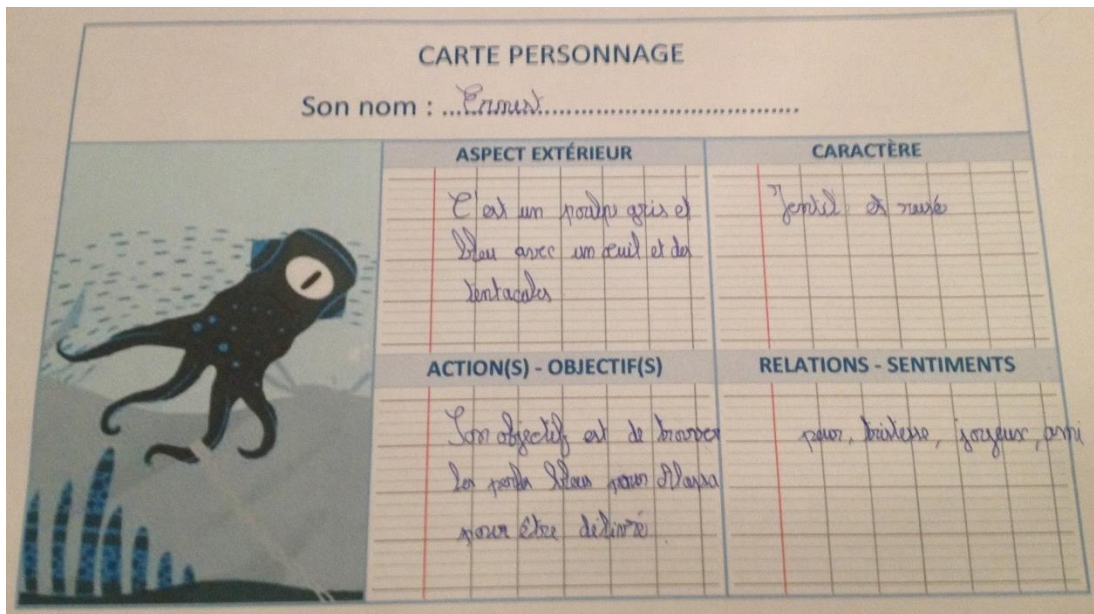 CARTE PERSONNAGE
Son nom : ...Ernest...
ASPECT EXTÉRIEUR
C'est un poulpe gris et
bleu avec un œuil et des
tentacules
CARACTÈRE
Gentil et rusé
ACTION(S) - OBJECTIF(S)
Son objectif est de trouver
les perles bleus pour
pour être délivré
RELATIONS - SENTIMENTS
peur, tristesse, joyeux, ami